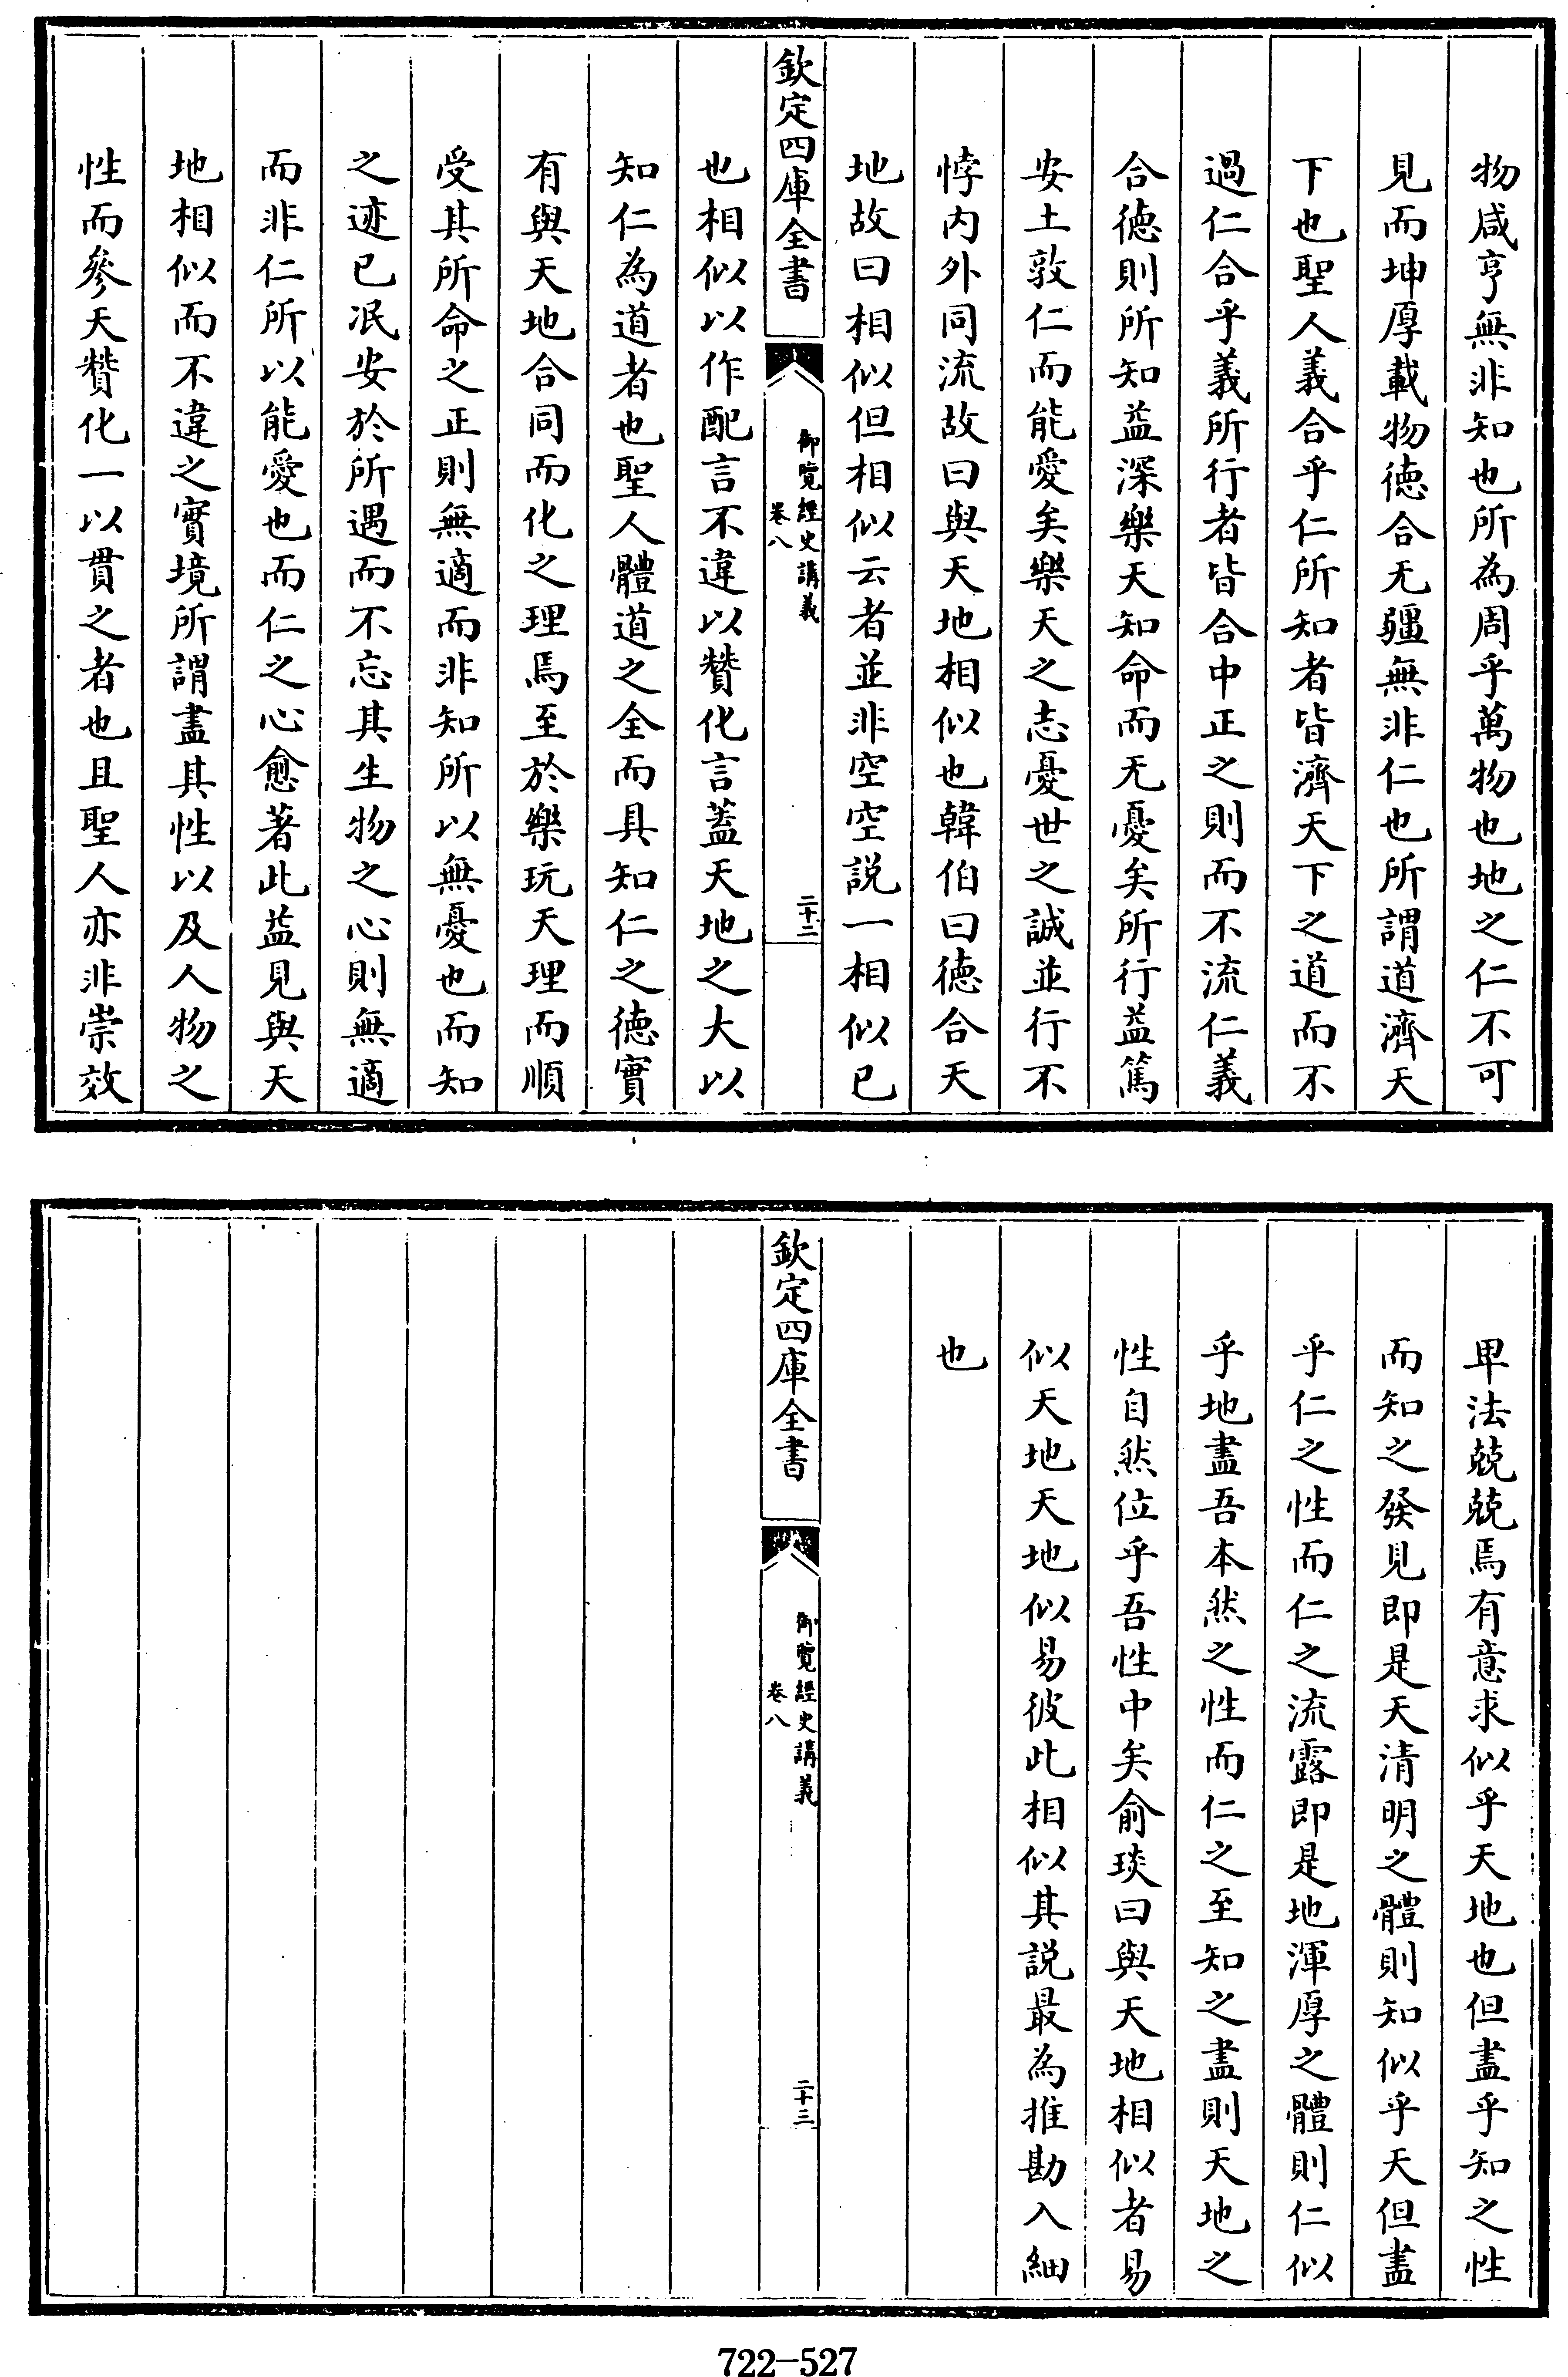 物咸亨無非知也所為周乎萬物也地之仁不可
見而坤厚載物徳合无疆無非仁也所謂道濟天
下也聖人義合乎仁所知者皆濟天下之道而不
過仁合乎義所行者皆合中正之則而不流仁義
合徳則所知益深樂天知命而无憂矣所行益篤
安土敦仁而能愛矣樂天之志憂世之誠並行不
悖内外同流故曰與天地相似也韓伯曰徳合天
地故曰相似但相似云者並非空空説一相似已
欽定四庫全書
御覽經史講義
卷八
二十二
也相似以作配言不違以贊化言蓋天地之大以
知仁為道者也聖人體道之全而具知仁之徳實
有與天地合同而化之理焉至於樂玩天理而順
受其所命之正則無適而非知所以無憂也而知
之迹已泯安於所遇而不忘其生物之心則無適
而非仁所以能愛也而仁之心愈著此益見與天
地相似而不違之實境所謂盡其性以及人物之
性而參天贊化一以貫之者也且聖人亦非崇效
卑法兢兢焉有意求似乎天地也但盡乎知之性
而知之發見即是天清明之體則知似乎天但盡
乎仁之性而仁之流露即是地渾厚之體則仁似
乎地盡吾本然之性而仁之至知之盡則天地之
性自然位乎吾性中矣俞琰曰與天地相似者易
似天地天地似易彼此相似其説最為推勘入細
也
欽定四庫全書
御覽經史講義
卷八
二十三
722-527